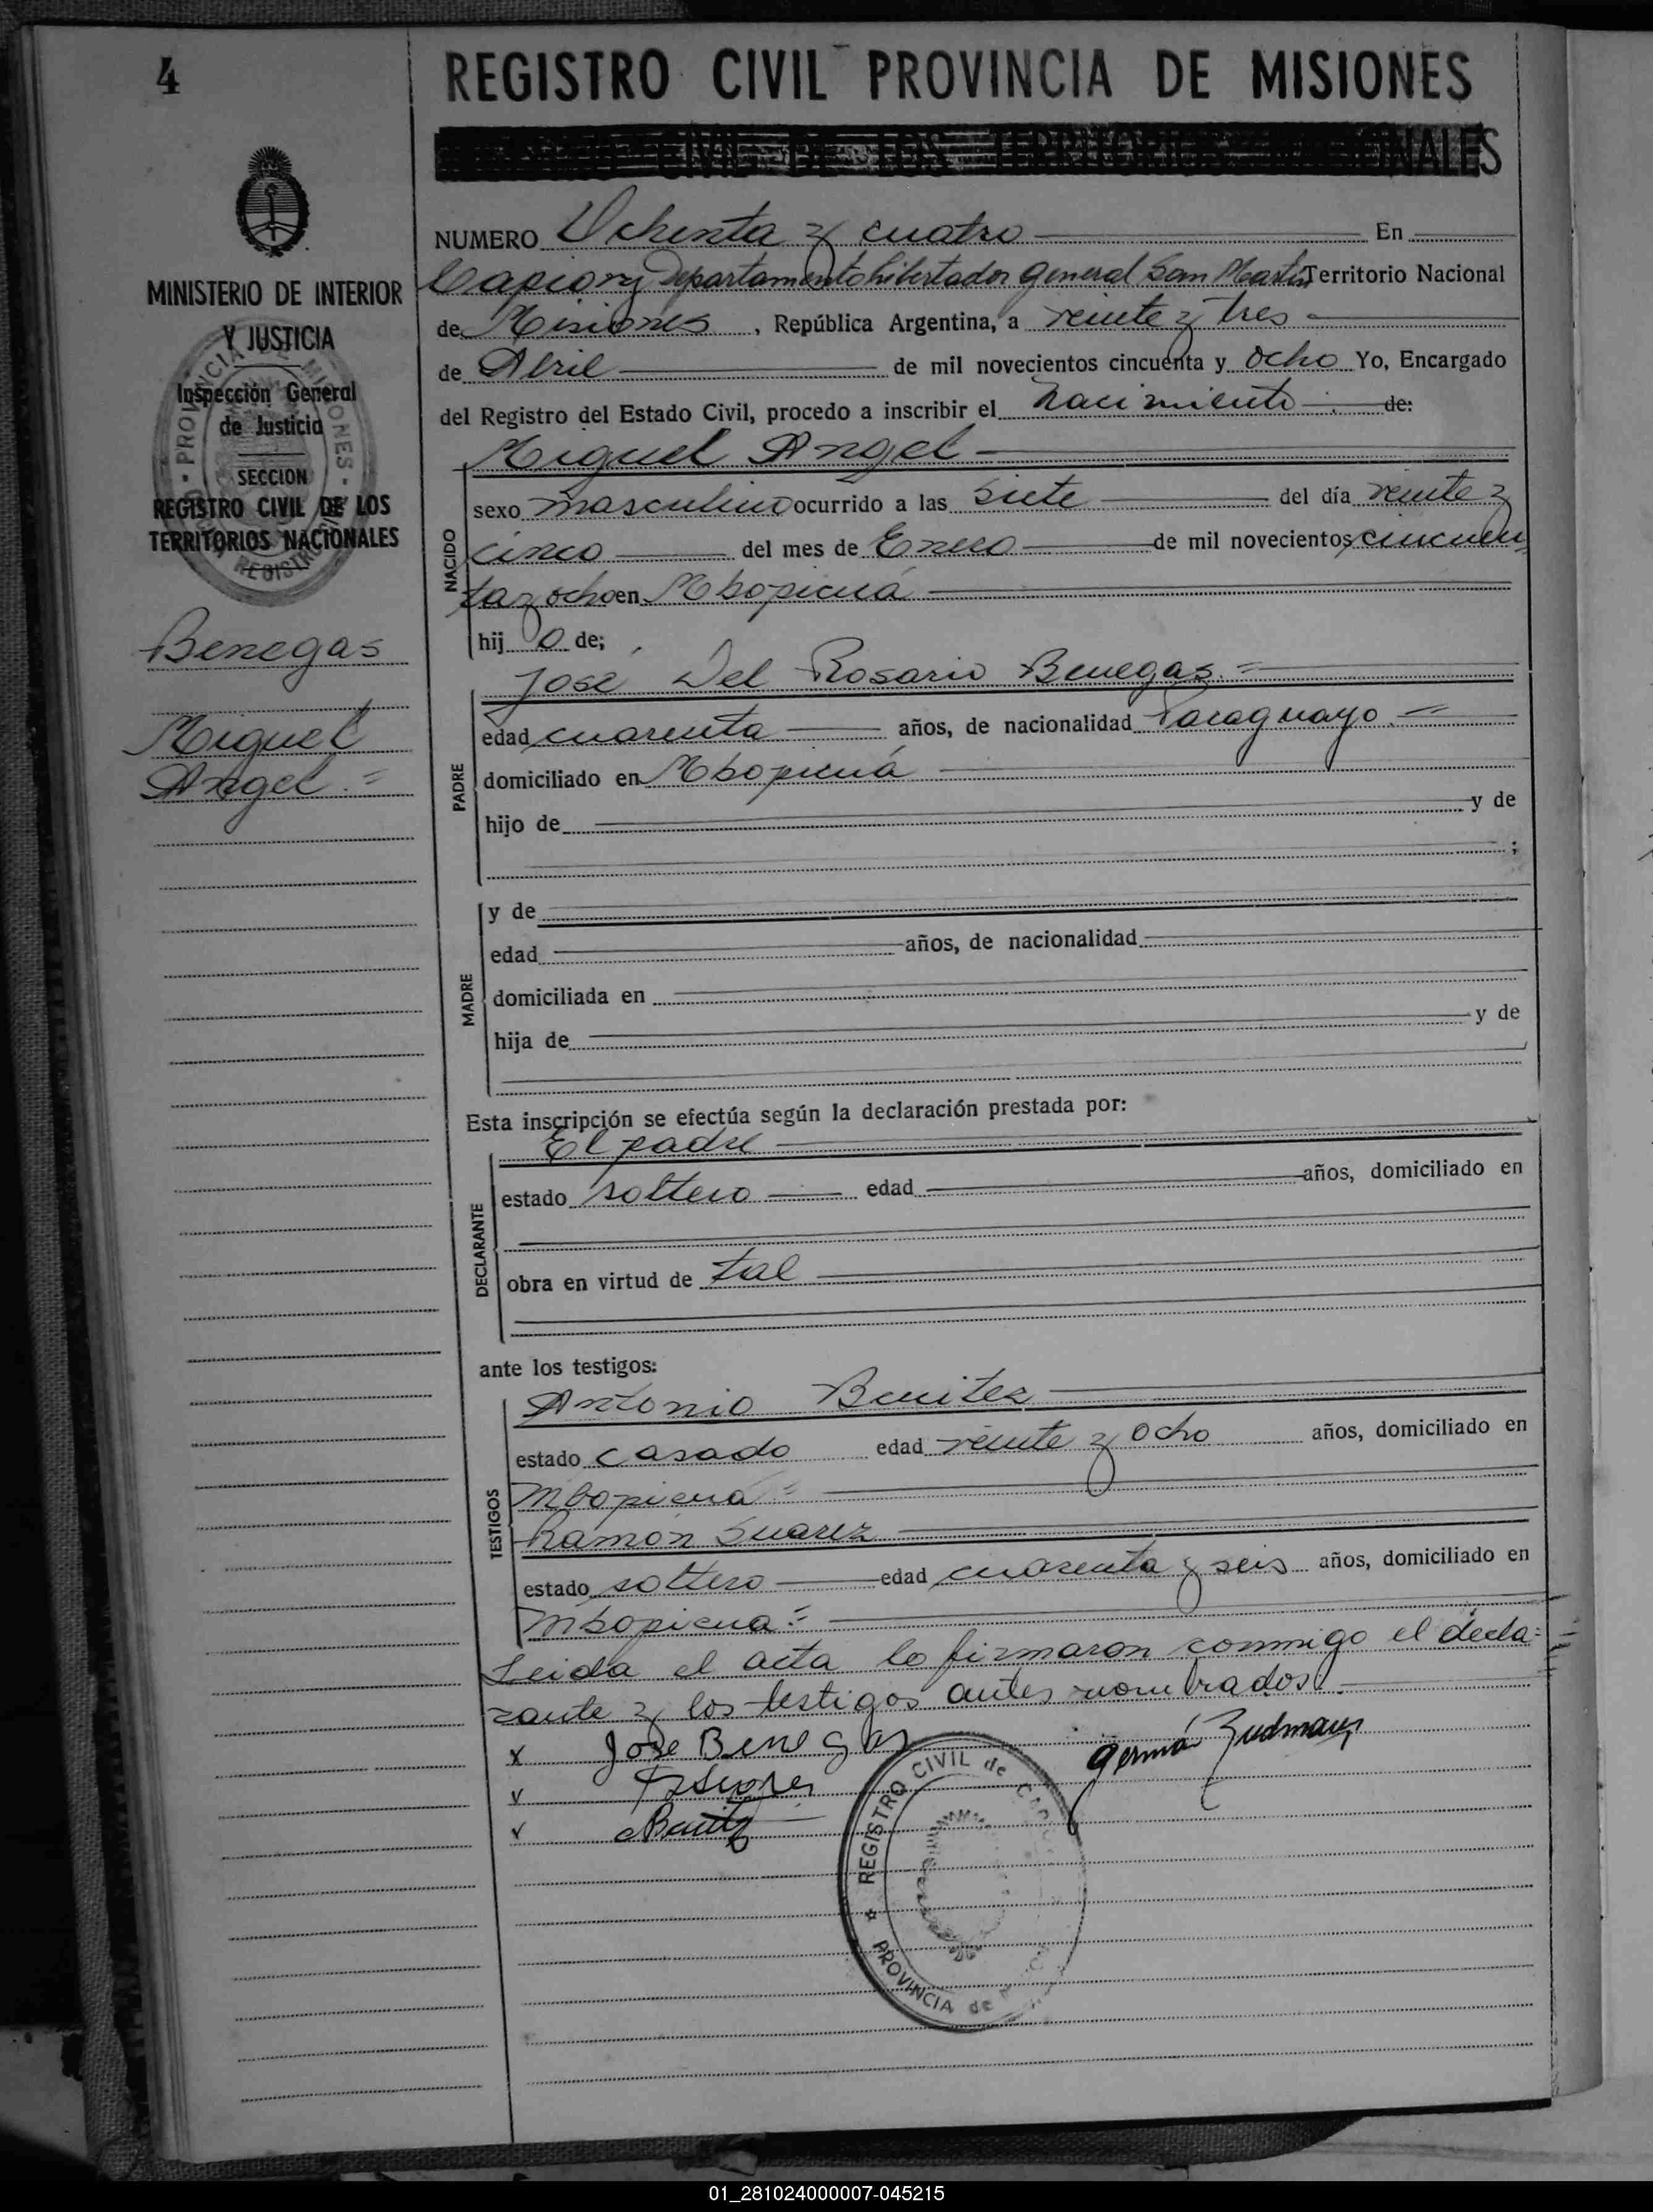 4
REGISTRO CIVIL PROVINCIA DE MISIONES
REGISTRO CIVIL DE LOS TERRITORIOS NACIONALES
MINISTERIO DE INTERIOR
Y JUSTICIA
Inspección General
de Justicia
SECCION
REGISTRO CIVIL DE LOS
TERRITORIOS NACIONALES
Benegas
Miguel
Angel.=
NUMERO Ochenta y cuatro En
Capiovy Departamento Libertador General San Martin Territorio Nacional
de Misiones, República Argentina, a veinte y tres
de Abril de mil novecientos cincuenta y ocho Yo, Encargado
del Registro del Estado Civil, procedo a inscribir el nacimiento de:
Miguel Angel
NACIDO
sexo masculino ocurrido a las siete del día veinte y
cinco del mes de Enero de mil novecientos cincuen
ta y ocho en Mbopicuá
hij o de;
José Del Rosario Benegas.=
PADRE
edad cuarenta años, de nacionalidad Paraguayo.=
domiciliado en Mbopicuá
hijo de y de
;
MADRE
y de
edad años, de nacionalidad
domiciliada en
hija de y de
Esta inscripción se efectúa según la declaración prestada por:
El padre
DECLARANTE
estado soltero edad años, domiciliado en
obra en virtud de tal
ante los testigos:
TESTIGOS
Antonio Benitez
estado casado edad veinte y ocho años, domiciliado en
Mbopicuá=
Ramón Suarez
estado soltero edad cuarenta y seis años, domiciliado en
Mbopicua.=
Leida el acta lo firmaron conmigo el decla=
rante y los testigos antes nombrados.
x Jose Benegas
v
v ABenitz
REGISTRO CIVIL de
PROVINCIA de
01_281024000007-045215